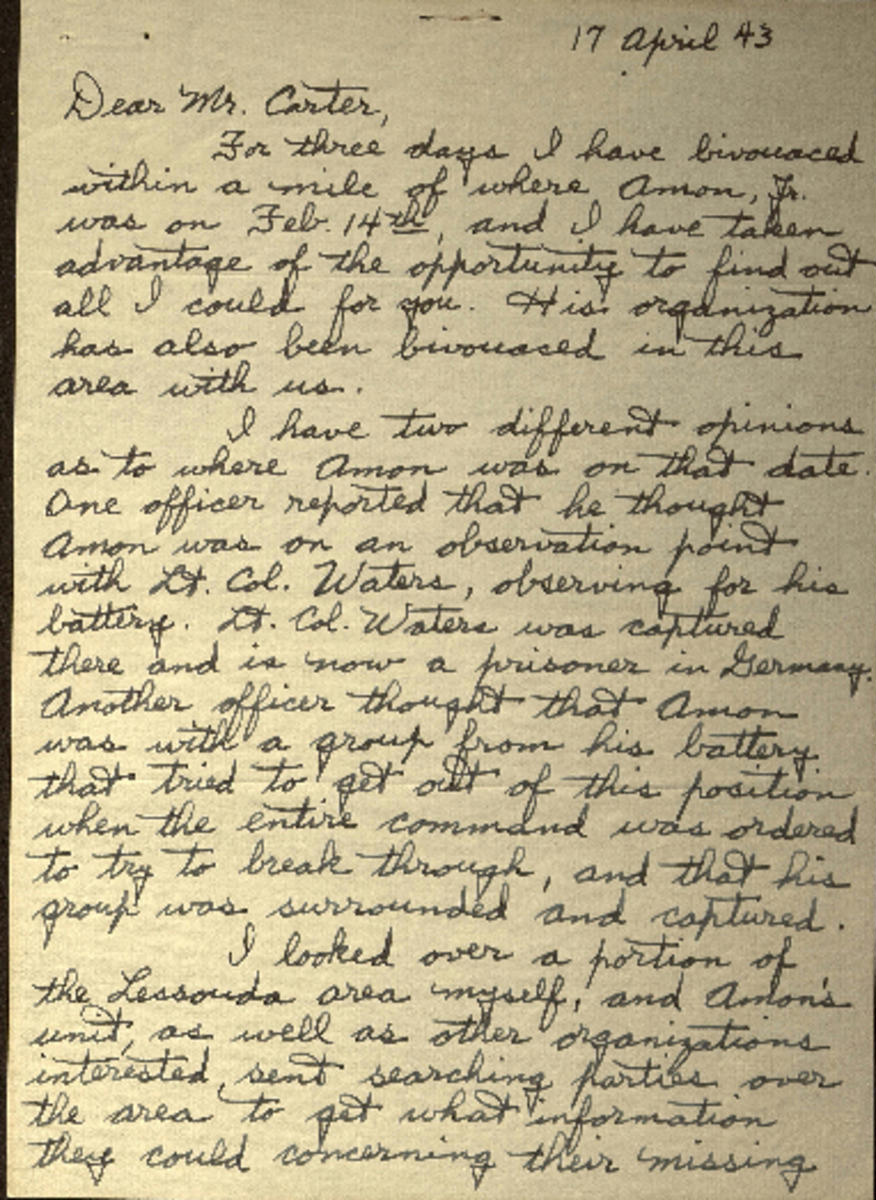 17 April 43
Dear Mr. Carter,
For three days I have bivouaced
within a mile of where Amon, Jr.
was on Feb. 14th, and I have taken
advantage of the opportunity to find out
all I could for you. His organization
has also been bivouaced in this
area with us.
I have two different opinions
as to where Amon was on that date.
One officer reported that he thought
Amon was on an observation point
with Lt. Col. Waters, observing for his
battery. Lt. Col. Waters was captured
there and is now a prisoner in Germany.
Another officer thought that Amon
was with a group from his battery
that tried to get out of this position
when the entire command was ordered
to try to break through, and that his
group was surrounded and captured.
I looked over a portion of
the Lessouda area myself, and Amon's
unit, as well as other organizations
interested, sent searching parties over
the area to get what information
they could concerning their missing